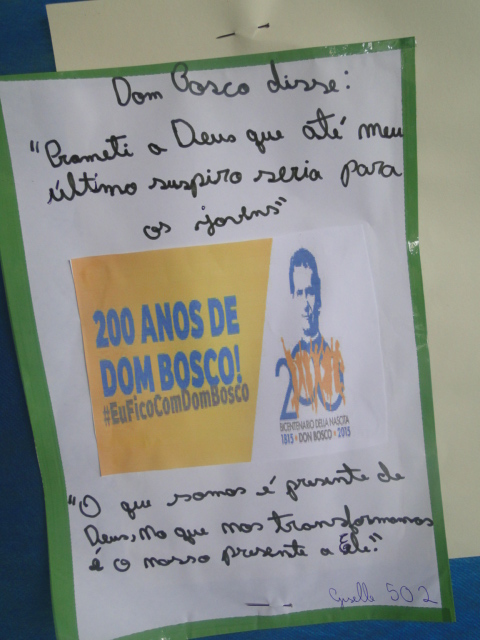 Dom Bosco disse:
"Prometi a Deus que até meu
último suspiro seria para
os jovens"
200 ANOS DE
DOM BOSCO!
#EuFicoComDomBosco
200
BICENTENARIO DELLA NASCITA
1815 • DON BOSCO • 2015
"O que somos é presente de
Deus, no que nos transformamos
é o nosso presente a Ele."
Giselle 502